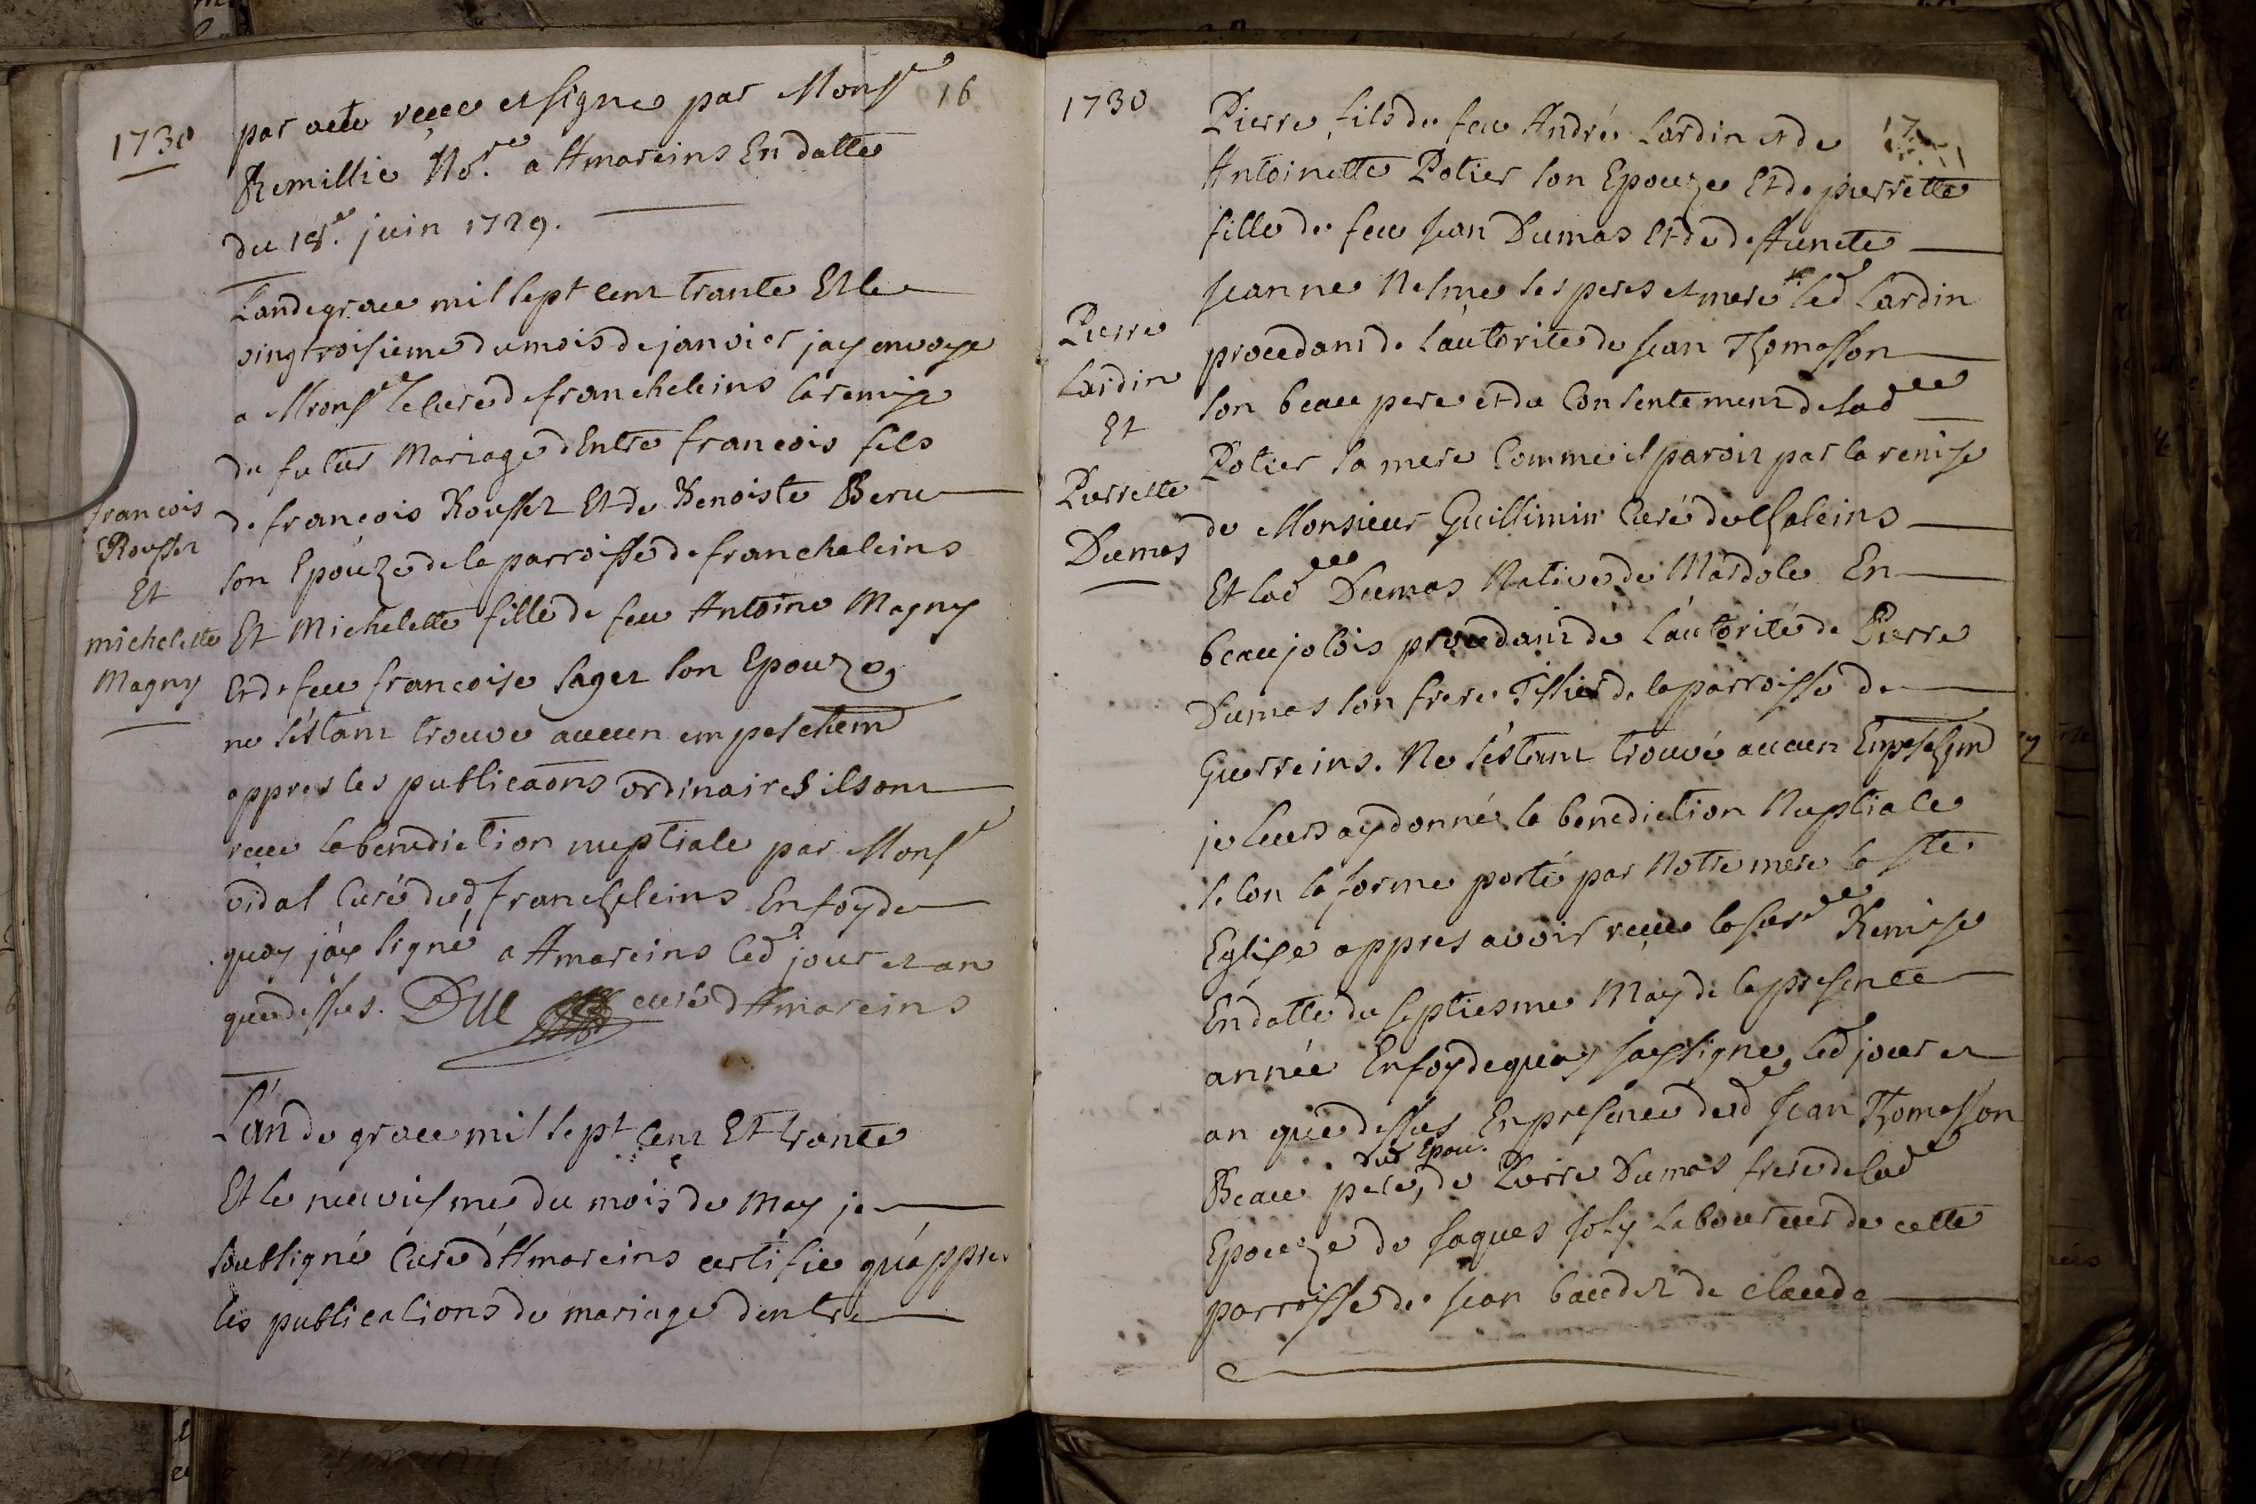 1730
16
par acte reçeu et signe par Monsr
Remillie No.re a Amareins En datte
du 18e. juin 1729.
L'an de grace mil sept cent trante Et le
vingtroisieme du mois de janvier jay envoyé
a Monsr le curé de francheleins la remise
du futur Mariage d'Entre francois fils
de françois Rousset Et de Benoiste Beru
son Epouze de la parroisse de francheleins
Et Michelette fille de feu Antoine Magny
Et de feu francoise sager son Epouze,
ne s'étant trouvé aucun empeschemt
appres les publicaons ordinaires ils ont
reçeu la benediction nuptiale par Monsr
vidal Curé dud francheleins En foy de
quoy j'ay signé a Amareins led jour et an
que dessus. Duc curé d'Amareins
francois
Rousset
Et
michelette
Magny
L'an de grace mil sept cent Et trante
Et le neuviesme du mois de May je
soubsigné Curé d'Amareins certifie qu'appres
les publications de mariage d'entre
1730
17
Pierre fils de feu André Lardin et de
Antoinette Potier son Epouze Et de pierrette
fille de feu Jean Dumas Et de deffuncte
Jeanne Nesme ses peres et mere led Lardin
procedant de l'autorité de Jean Thomasson
son beau pere et du Consentement de lade
Potier sa mere Comme il paroit par la remise
de Monsieur Guillimin Curé de Chaleins
Et lade Dumas Native de Mardole En
beaujolois procedant de l'autorité de Pierre
Dumas son frere Tissier de la parroisse de
Guerreins. Ne s'étant trouvé aucun Empeschmt
je leurs ay donné la benediction Nuptiale
selon la forme porté par Notre mere la Ste
Eglise appres avoir reçeu la susde Remise
En datte du septiesme May de la presente
année En foy de quoy jay signé led jour et
an que dessus En presence dud Jean Thomasson
Beau pere dud Epou. de Pierre Dumas frere de lade
Epouze de Jaques Joly laboureur de cette
parroisse de Jean baudet de claude
Pierre
Lardin
Et
Pierrette
Dumas